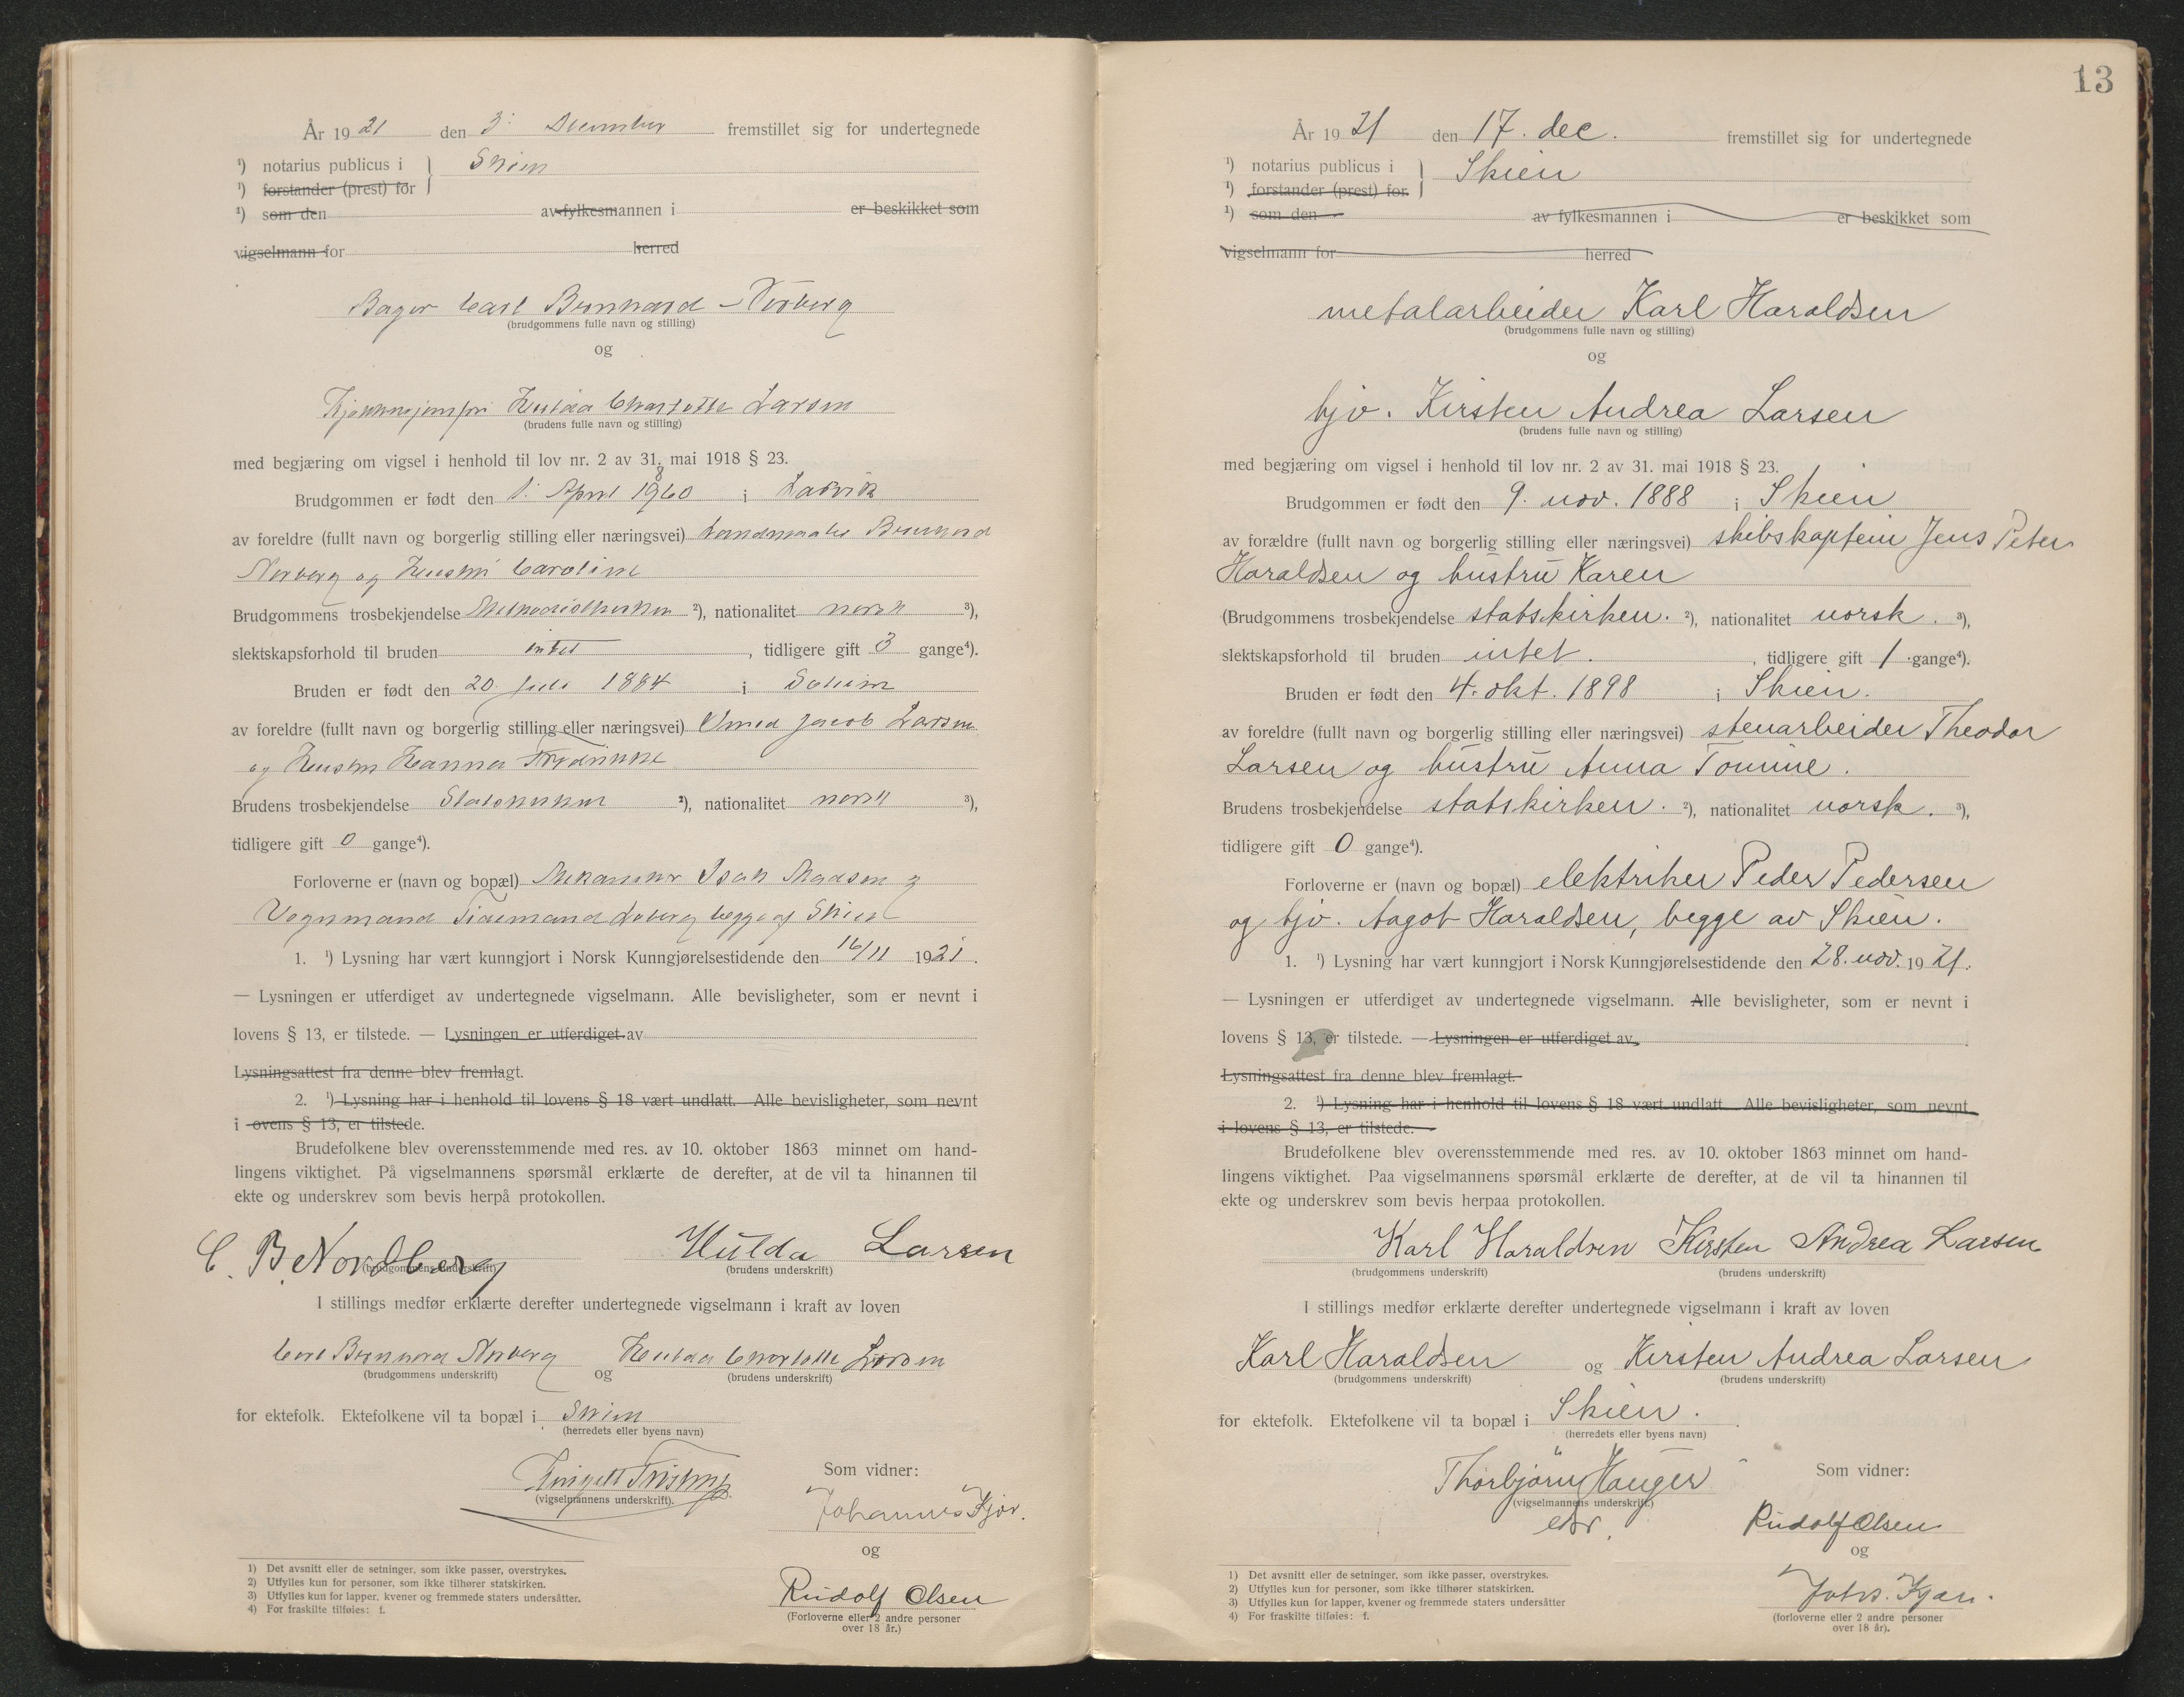 År 1921 den 3. December fremstillet sig for undertegnede
¹) notarius publicus i } Skien
¹) forstander (prest) for
¹) som den av fylkesmannen i er beskikket som
vigselmann for herred
Bager Carl Bernhard Norberg
(brudgommens fulle navn og stilling)
og
Hulda Charlotte Larsen
(brudens fulle navn og stilling)
med begjæring om vigsel i henhold til lov nr. 2 av 31. mai 1918 § 23.
Brudgommen er født den 1. April 1860 i Larvik
av foreldre (fullt navn og borgerlig stilling eller næringsvei) Bernhard
Norberg og Hustru Caroline
Brudgommens trosbekjendelse Methodistkirken ²), nationalitet norsk ³),
slektskapsforhold til bruden intet, tidligere gift 3 gange⁴).
Bruden er født den 20. juli 1884 i Solum
av foreldre (fullt navn og borgerlig stilling eller næringsvei) Jacob Larsen
og Hustru Hanna
Brudens trosbekjendelse Statskirken ²), nationalitet norsk ³),
tidligere gift 0 gange⁴).
Forloverne er (navn og bopæl) Mekaniker Isak Madsen og
Vognmand Tidemand begge af Skien
1. ¹) Lysning har vært kunngjort i Norsk Kunngjørelsestidende den 16/11 1921.
— Lysningen er utferdiget av undertegnede vigselmann. Alle bevisligheter, som er nevnt i
lovens § 13, er tilstede. — Lysningen er utferdiget av
Lysningsattest fra denne blev fremlagt.
2. ¹) Lysning har i henhold til lovens § 18 vært undlatt. Alle bevisligheter, som nevnt
i ovens § 13, er tilstede.
Brudefolkene blev overensstemmende med res. av 10. oktober 1863 minnet om hand-
lingens viktighet. På vigselmannens spørsmål erklærte de derefter, at de vil ta hinannen til
ekte og underskrev som bevis herpå protokollen.
C. B. Nordberg Hulda Larsen
(brudgommens underskrift) (brudens underskrift)
I stillings medfør erklærte derefter undertegnede vigselmann i kraft av loven
Carl Bernhard Norberg og Hulda Charlotte Larsen
(brudgommens underskrift) (brudens underskrift)
for ektefolk. Ektefolkene vil ta bopæl i Skien
(herredets eller byens navn)
(vigselmannens underskrift).
Som vidner:
Johannes Kjær.
og
Rudolf Olsen
(Forloverne eller 2 andre personer
over 18 år.)
1) Det avsnitt eller de setninger, som ikke passer, overstrykes.
2) Utfylles kun for personer, som ikke tilhører statskirken.
3) Utfylles kun for lapper, kvener og fremmede staters undersåtter.
4) For fraskilte tilføies: f.
13
År 1921 den 17. dec. fremstillet sig for undertegnede
¹) notarius publicus i } Skien
¹) forstander (prest) for
¹) som den av fylkesmannen i er beskikket som
vigselmann for herred
metalarbeider Karl Haraldsen
(brudgommens fulle navn og stilling)
og
hjv. Kirsten Andrea Larsen
(brudens fulle navn og stilling)
med begjæring om vigsel i henhold til lov nr. 2 av 31. mai 1918 § 23.
Brudgommen er født den 9. nov. 1888 i Skien
av forældre (fullt navn og borgerlig stilling eller næringsvei) skibskaptein Jens Peter
Haraldsen og hustru Karen
(Brudgommens trosbekjendelse statskirken. ²), nationalitet norsk. ³),
slektskapsforhold til bruden intet., tidligere gift 1 gange⁴).
Bruden er født den 4. okt. 1898 i Skien.
av foreldre (fullt navn og borgerlig stilling eller næringsvei) stenarbeider Theodor
Larsen og hustru Anna Tomine.
Brudens trosbekjendelse statskirken. ²), nationalitet norsk. ³),
tidligere gift 0 gange⁴).
Forloverne er (navn og bopæl) elektriker Peder Pedersen
og hjv. Aagot Haraldsen, begge av Skien.
1. ¹) Lysning har vært kunngjort i Norsk Kunngjørelsestidende den 28. nov. 1921.
— Lysningen er utferdiget av undertegnede vigselmann. Alle bevisligheter, som er nevnt i
lovens § 13, er tilstede. — Lysningen er utferdiget av
Lysningsattest fra denne blev fremlagt.
2. ¹) Lysning har i henhold til lovens § 18 vært undlatt. Alle bevisligheter, som nevnt
i lovens § 13, er tilstede.
Brudefolkene blev overensstemmende med res. av 10. oktober 1863 minnet om hand-
lingens viktighet. Paa vigselmannens spørsmål erklærte de derefter, at de vil ta hinannen til
ekte og underskrev som bevis herpaa protokollen.
Karl Haraldsen Kirsten Andrea Larsen
(brudgommens underskrift) (brudens underskrift)
I stillings medfør erklærte derefter undertegnede vigselmann i kraft av loven
Karl Haraldsen og Kirsten Andrea Larsen
(brudgommens underskrift) (brudens underskrift)
for ektefolk. Ektefolkene vil ta bopæl i Skien.
(herredets eller byens navn)
Thorbjörn Hauger
(vigselmannens underskrift)
Som vidner:
Rudolf Olsen
og
Johs. Kjær.
(forloverne eller 2 andre personer
over 18 år).
1) Det avsnitt eller de setninger, som ikke passer, overstrykes.
2) Utfylles kun for personer, som ikke tilhører statskirken.
3) Utfylles kun for lapper, kvener og fremmede staters undersåtter
4) For fraskilte tilføies: f.